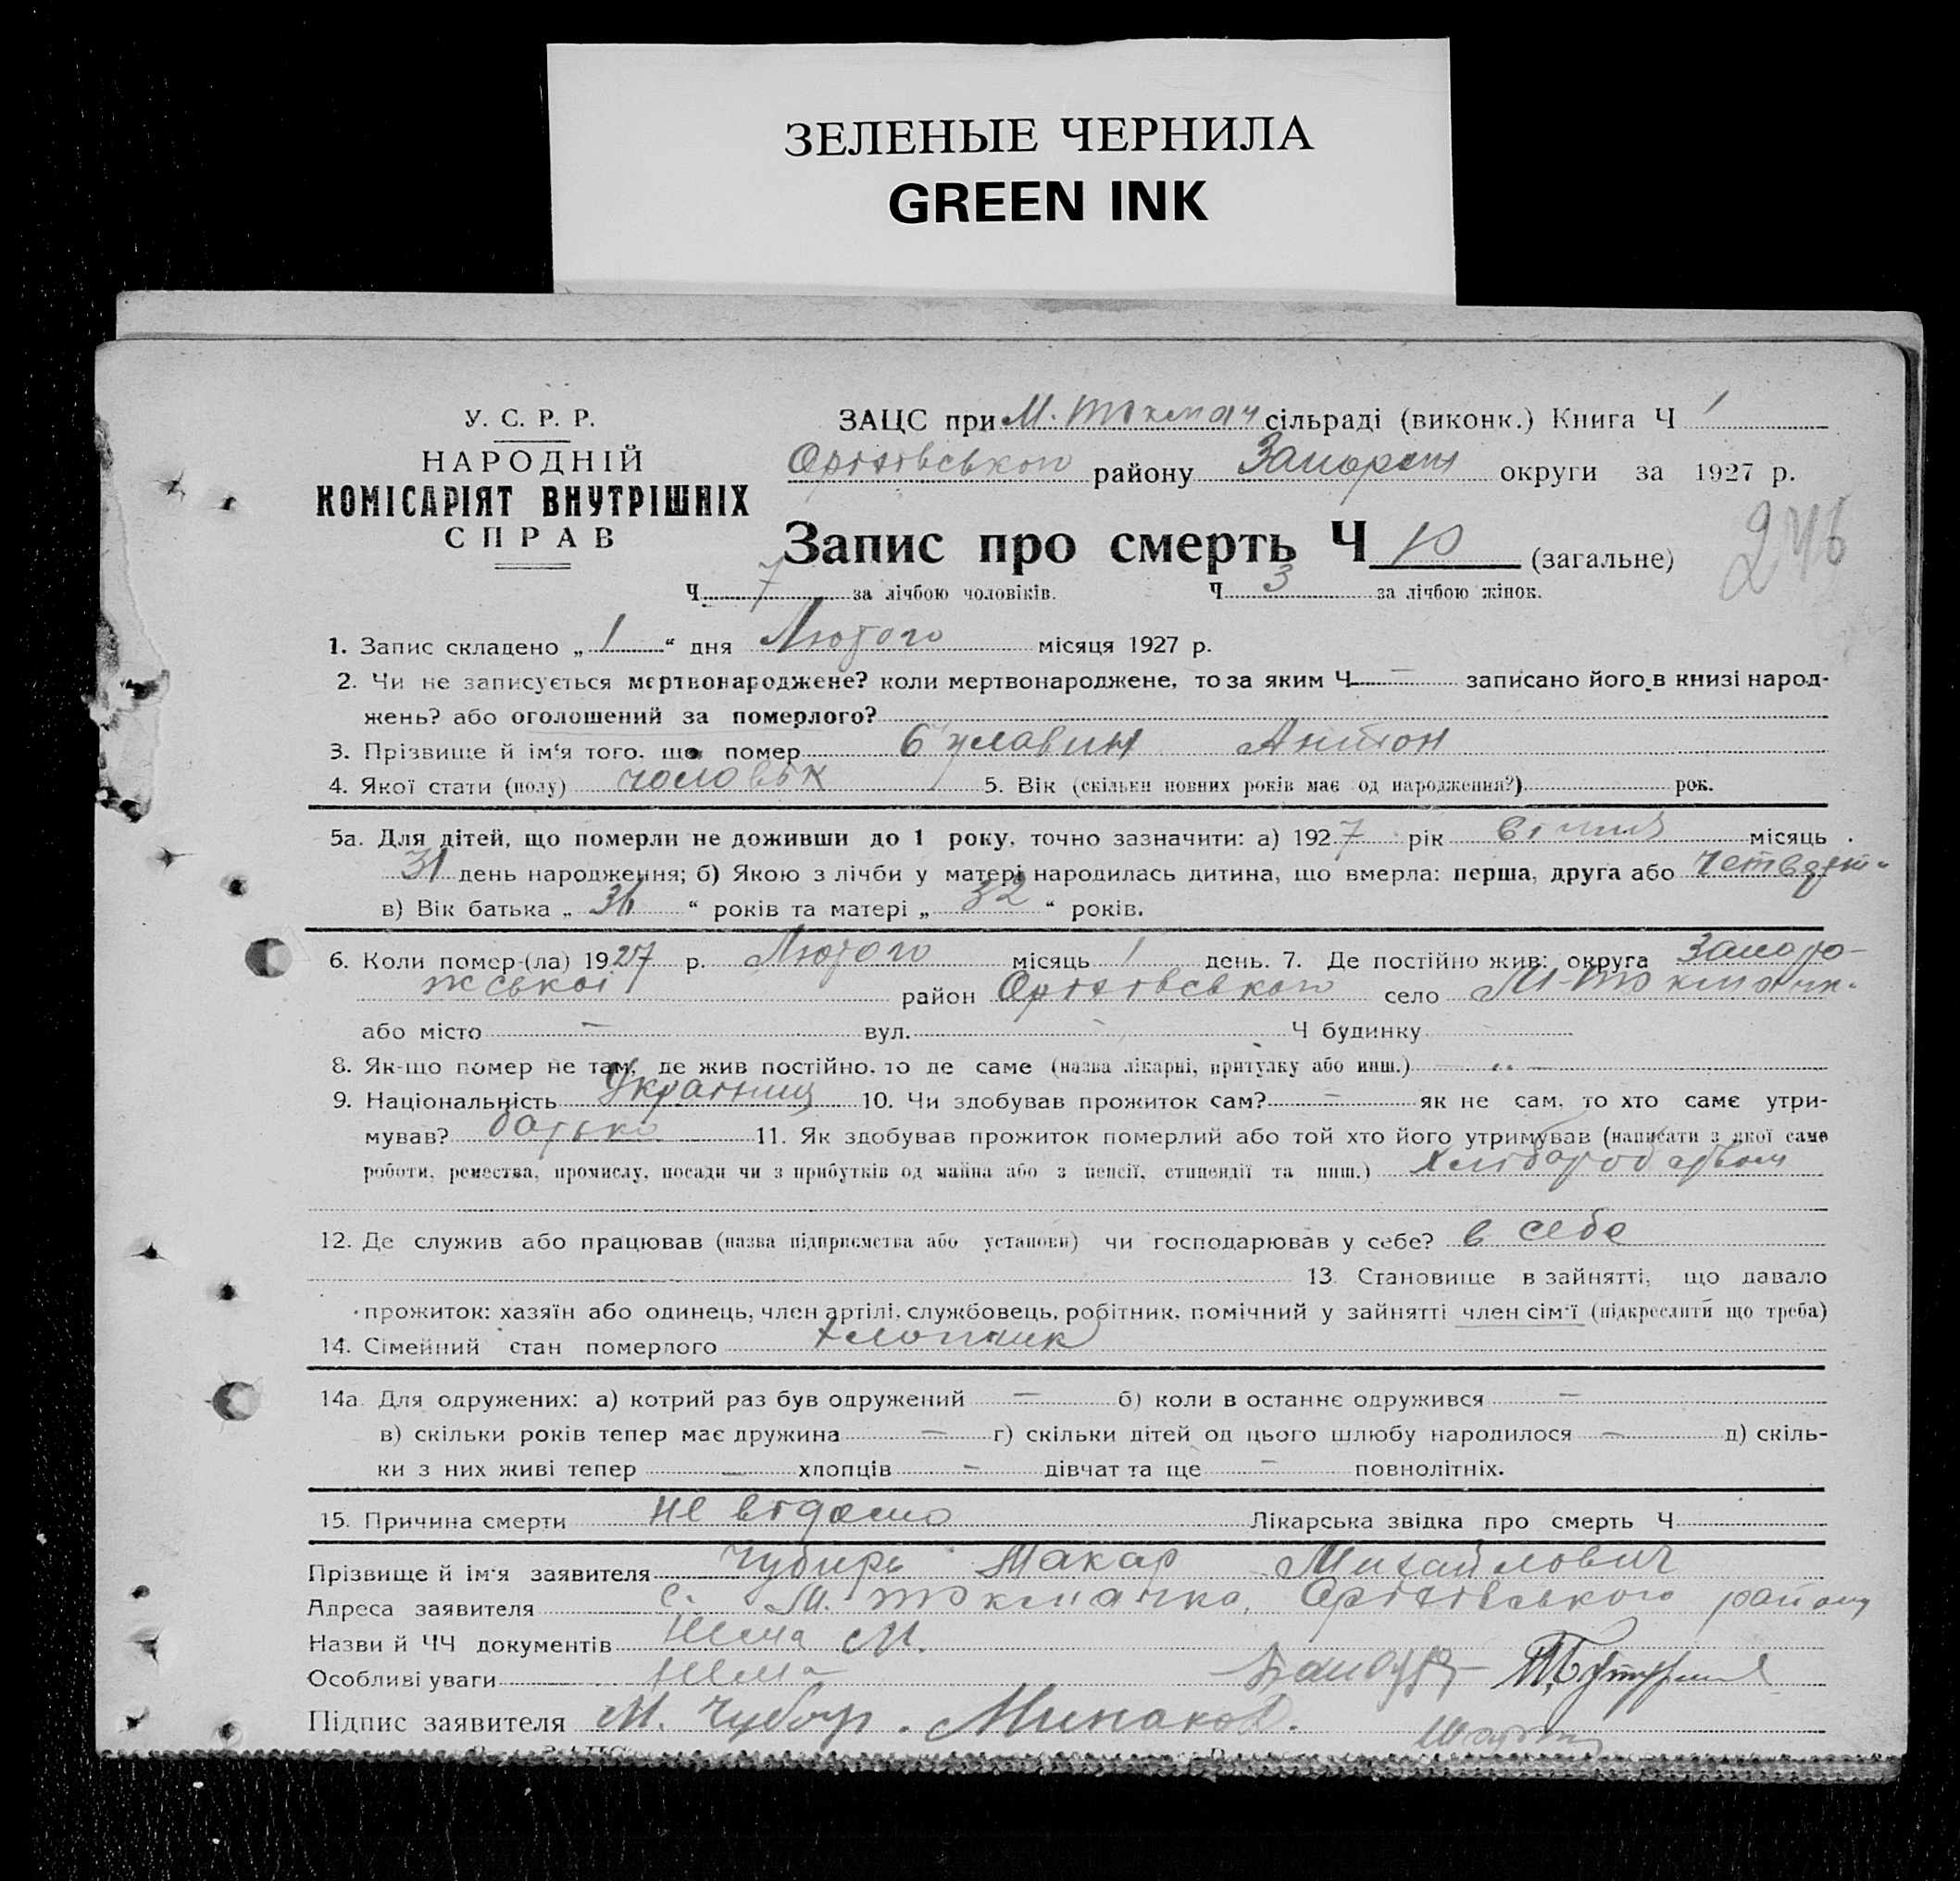 ЗЕЛЕНЫЕ ЧЕРНИЛА
GREEN INK
У. С. Р. Р.
НАРОДНІЙ
КОМІСАРІЯТ ВНУТРІШНІХ
СПРАВ
ЗАЦС при М. Токмач сільраді (виконк.) Книга Ч 1
Оріхівського району Запоріж округи за 1927 р.
Запис про смерть Ч 10 (загальне)
246
Ч 7 за лічбою чоловіків. Ч 3 за лічбою жінок.
1. Запис складено „ 1 “ дня Лютого місяця 1927 р.
2. Чи не записується мертвонароджене? коли мертвонароджене, то за яким Ч — записано його в книзі народ-
жень? або оголошений за померлого?
3. Прізвище й ім'я того, що помер Буславин Антон
4. Якої стати (полу) чоловік 5. Вік (скільки повних років має од народження?) рок.
5а. Для дітей, що померли не доживши до 1 року, точно зазначити: а) 1927 рік Січня місяць
31 день народження; б) Якою з лічби у матері народилась дитина, що вмерла: перша, друга або четверт
в) Вік батька „ 36 “ років та матері „ 32 “ років.
6. Коли помер-(ла) 1927 р. Лютого місяць 1 день. 7. Де постійно жив: округа Запорі-
жської район Оріхівського село М-Токмачк.
або місто — вул. — Ч будинку
8. Як-що помер не там, де жив постійно, то де саме (назва лікарні, притулку або инш.) — „ —
9. Національність Українец 10. Чи здобував прожиток сам? — як не сам, то хто саме утри-
мував? батько 11. Як здобував прожиток померлий або той хто його утримував (написати з якої саме
роботи, ремества, промислу, посади чи з прибутків од майна або з пенсії, стипендії та инш.) Хліборобством
12. Де служив або працював (назва підприємства або установи) чи господарював у себе? в себе
13. Становище в зайнятті, що давало
прожиток: хазяїн або одинець, член артілі, службовець, робітник, помічний у зайнятті член сім'ї (підкреслити що треба)
14. Сімейний стан померлого хлопчик
14а. Для одружених: а) котрий раз був одружений — б) коли в останнє одружився —
в) скільки років тепер має дружина — г) скільки дітей од цього шлюбу народилося — д) скіль-
ки з них живі тепер — хлопців — дівчат та ще — повнолітніх.
15. Причина смерти не відомо Лікарська звідка про смерть Ч
Прізвище й ім'я заявителя Чубирь Макар Михайлович
Адреса заявителя с. М. Токмачка, Оріхівського району
Назви й ЧЧ документів Нема М.
Особливі уваги Нема
Підпис заявителя М. Чубар. Минаков.